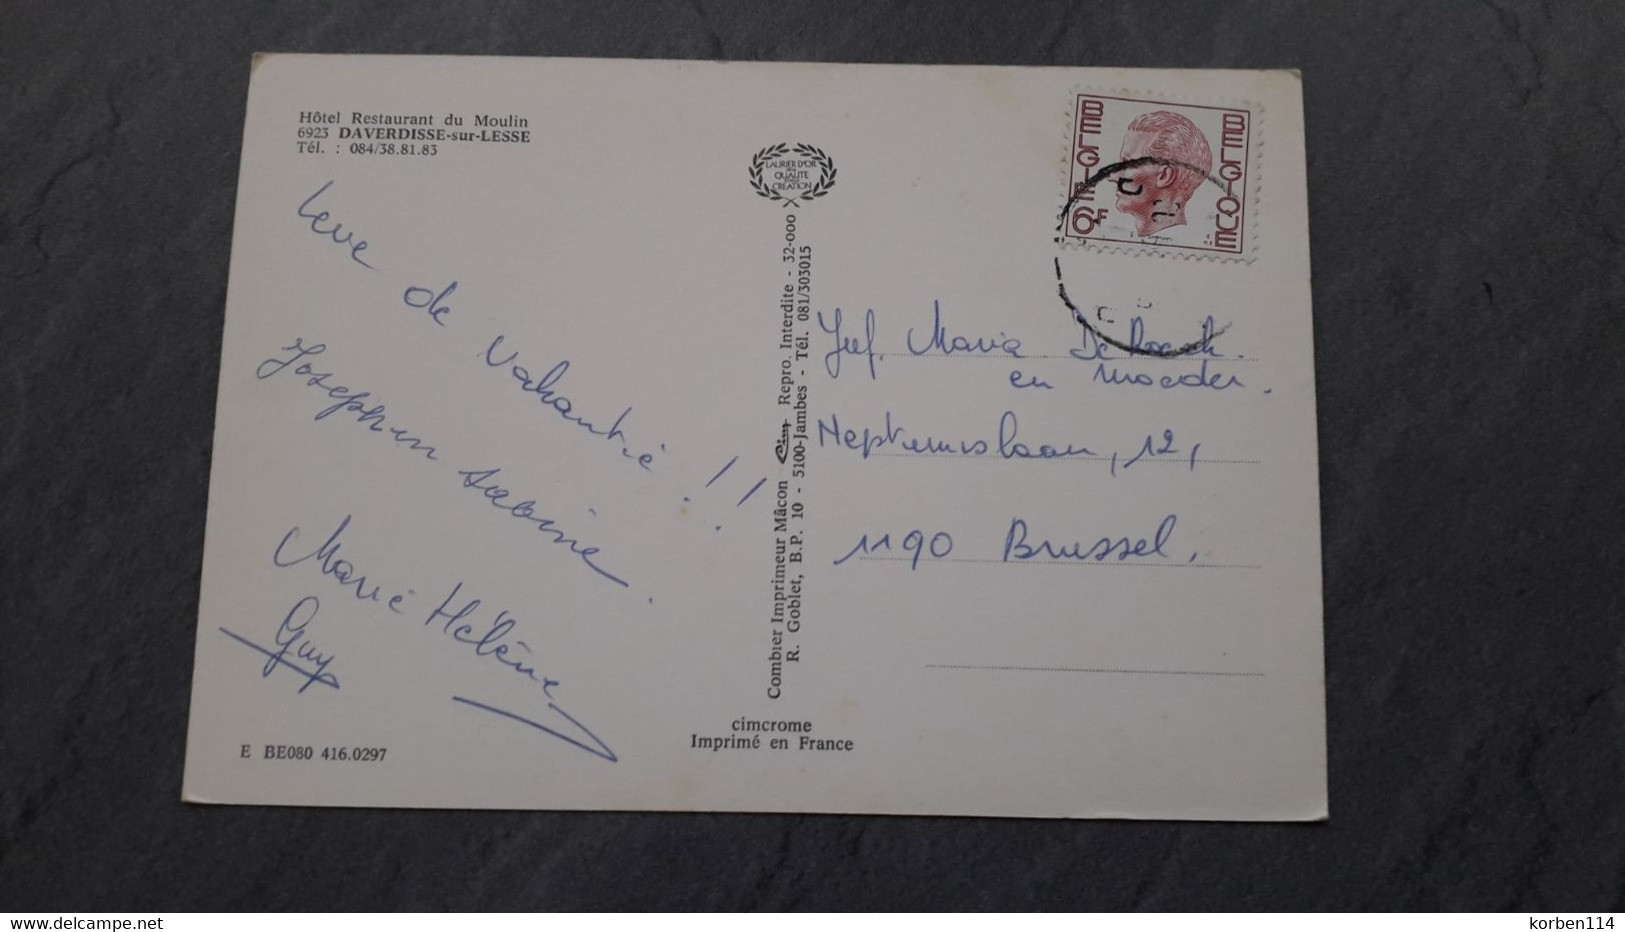 Hôtel Restaurant du Moulin
6923 DAVERDISSE-sur-LESSE
Tél. : 084/38.81.83
Leve
de
Vakantie !!
Josephus Sabine.
Marie Hélène
Guy
E BE080 416.0297
LAURIER D'OR
DE LA
QUALITE
CREATION
Combier Imprimeur Mâcon Cim Repro. Interdite - 32-000
R. Goblet, B.P. 10 - 5100-Jambes - Tél. 081/303015
cimcrome
Imprimé en France
BELGIE 6F
BELGIQUE
Juf. Maria De
en moeder.
Neptunuslaan, 12,
1190 Brussel.
www.delcampe.net
korben114